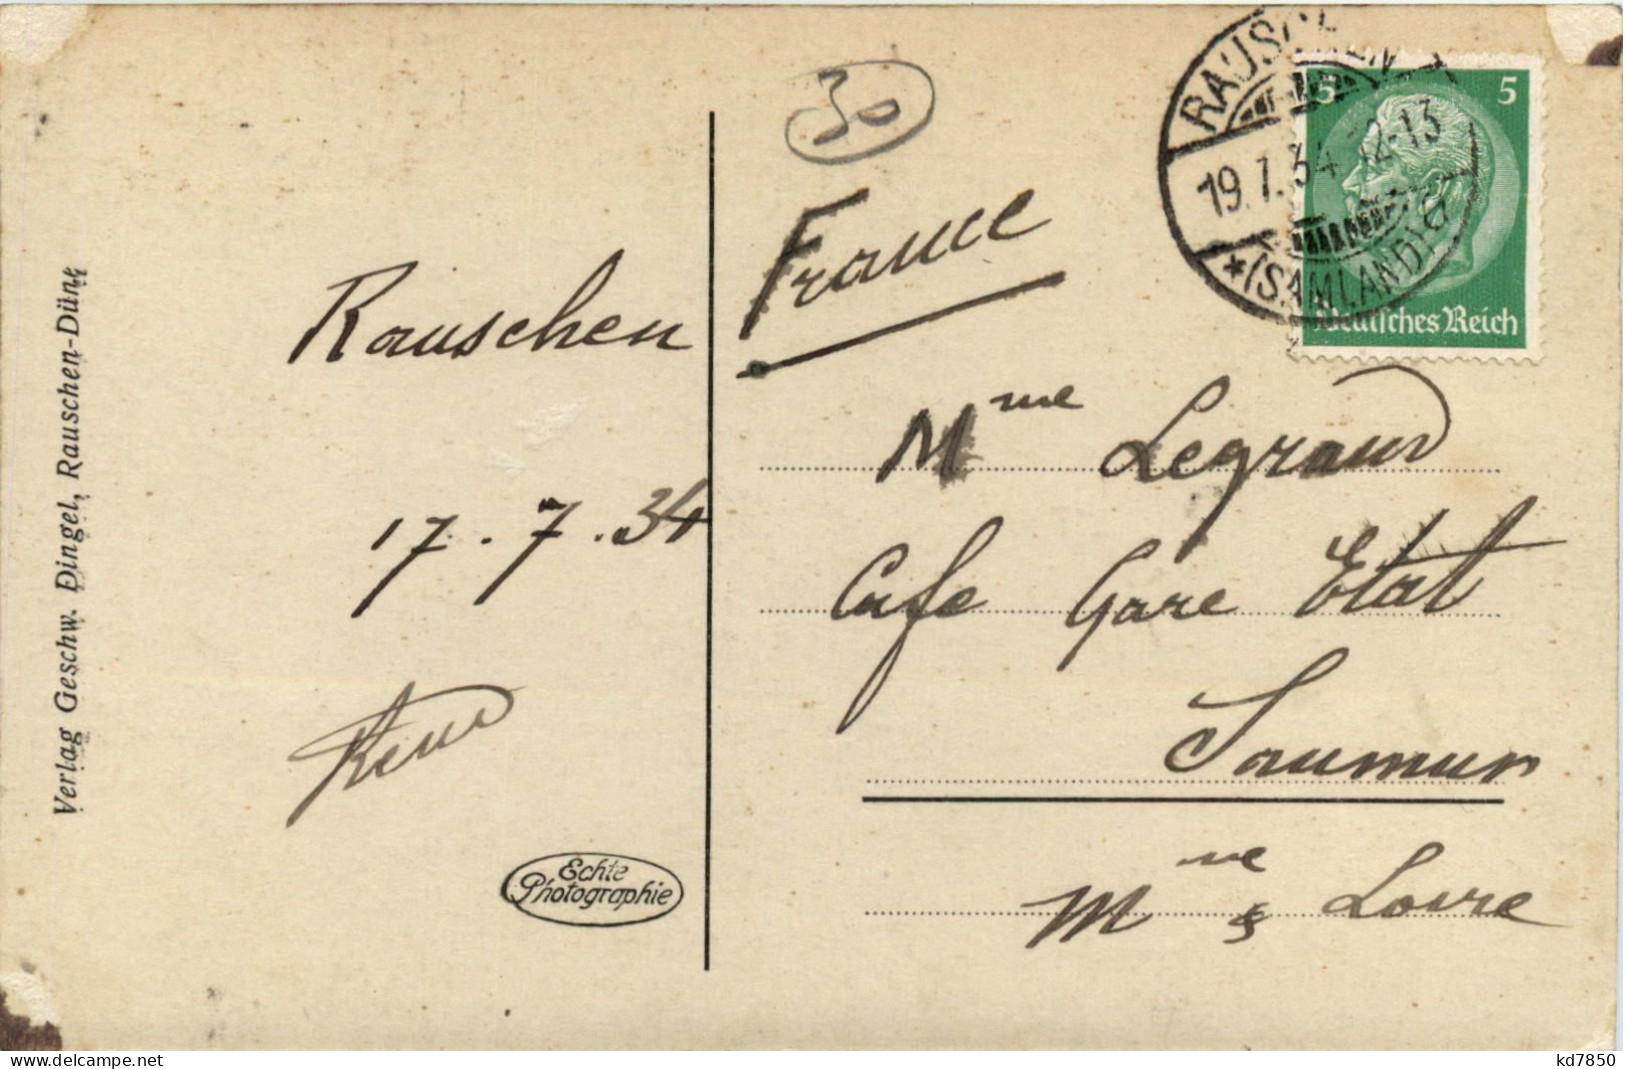 Verlag Geschw. Dingel, Rauschen-Düne
Rauschen
17.7.34
Echte
Photographie
30
France
RAUSCHEN
19.7.34 12-13
*(SAMLAND) a
5 5
Deutsches Reich
Mme Legrand
Cafe Gare Etat
Saumur
Mne & Loire
kd7850